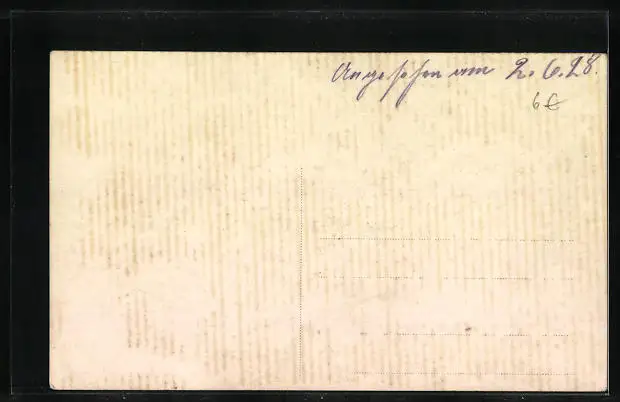 Angesehen am 2.6.28.
6€